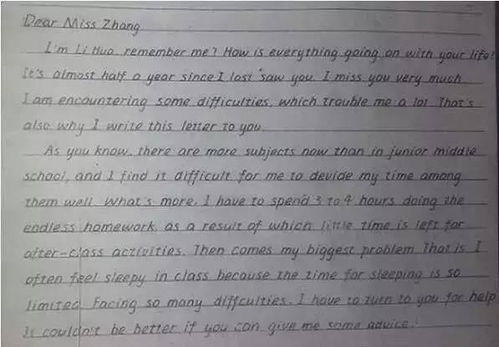 Dear Miss Zhang
I'm Li Hua, remember me? How is everything going on with your life?
It's almost half a year since I last saw you. I miss you very much
I am encountering some difficulties, which trouble me a lot. That's
also why I write this letter to you.
As you know, there are more subjects now than in junior middle
school, and I find it difficult for me to devide my time among
them well. What's more, I have to spend 3 to 4 hours doing the
endless homework, as a result of which little time is left for
after-class activities. Then comes my biggest problem. That is I
often feel sleepy in class because the time for sleeping is so
limited. Facing so many diffculties, I have to turn to you for help
It couldn't be better if you can give me some advice.